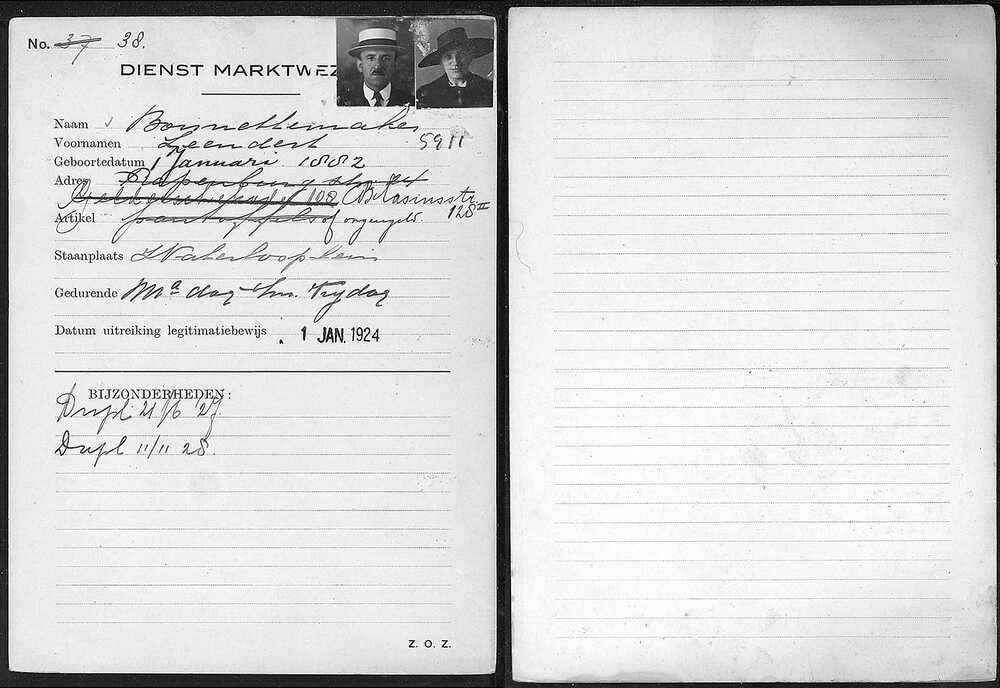 No. 37 38.
DIENST MARKTWEZ
Naam √ Bonnettemaker
Voornamen Leendert 5911
Geboortedatum 1 Januari 1882
Adres Rapenburgerstr 24
108 Blasiusstr.
128 II
Artikel pantoffels of ongeregeld.
Staanplaats Waterlooplein
Gedurende Ma dag t/m Vrydag
Datum uitreiking legitimatiebewijs . 1 JAN. 1924
BIJZONDERHEDEN:
Dupl 21/6 '27
Dupl 11/11 28.
Z. O. Z.